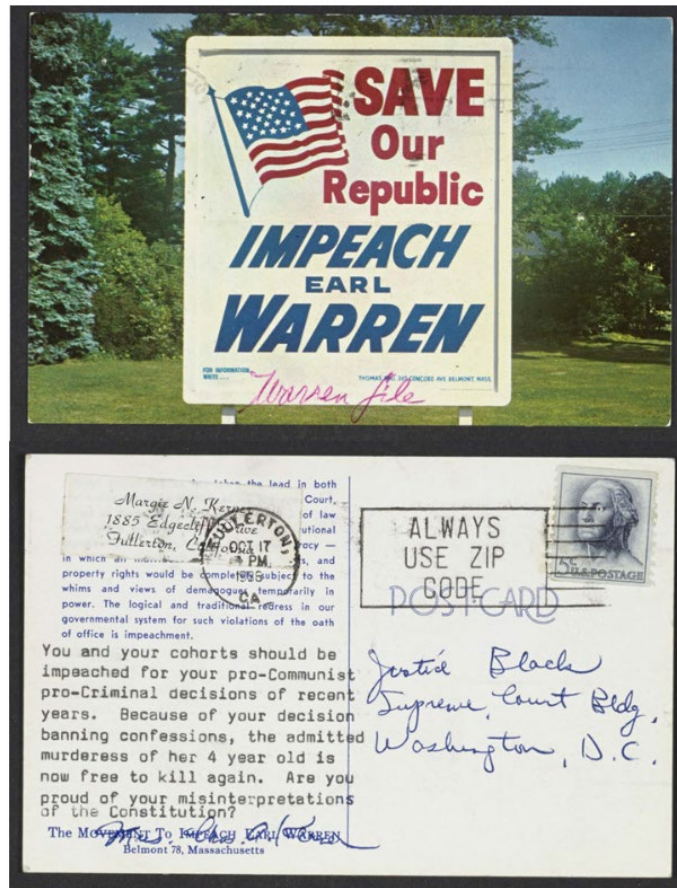 SAVE
Our
Republic
IMPEACH
EARL
WARREN
FOR INFORMATION
WRITE....
CONCORD AVE BELMONT MASS.
Warren file
taken the lead in both
Margie N.
Court,
1885 Drive
of law
Fullerton,
in which all
property rights would be completely subject to the
whims and views of demagogues temporarily in
power. The logical and traditional redress in our
governmental system for such violations of the oath
of office is impeachment.
FULLERTON,
OCT 17
PM
CA
ALWAYS
USE ZIP
CODE
5c
U.S. POSTAGE
POST CARD
You and your cohorts should be
impeached for your pro-Communist
pro-Criminal decisions of recent
years. Because of your decision
banning confessions, the admitted
murderess of her 4 year old is
now free to kill again. Are you
proud of your misinterpretations
of the Constitution?
Mrs.
The Movement To Impeach Earl Warren
Belmont 78, Massachusetts
Justice Black
Supreme Court Bldg.
Washington, D.C.